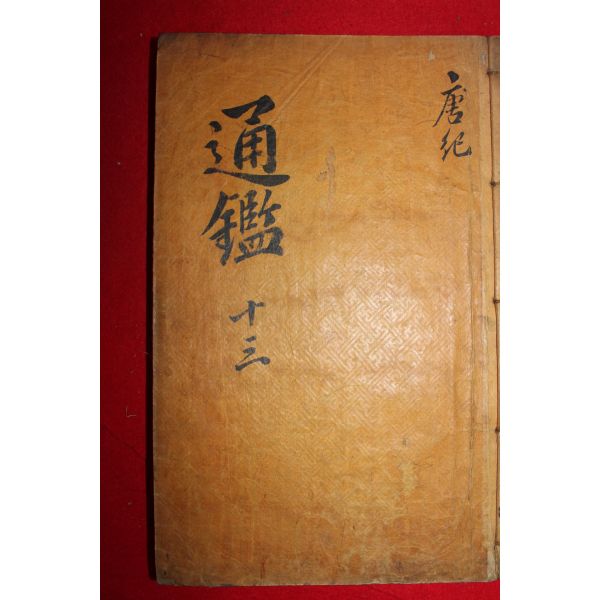 唐紀
通鑑
十三